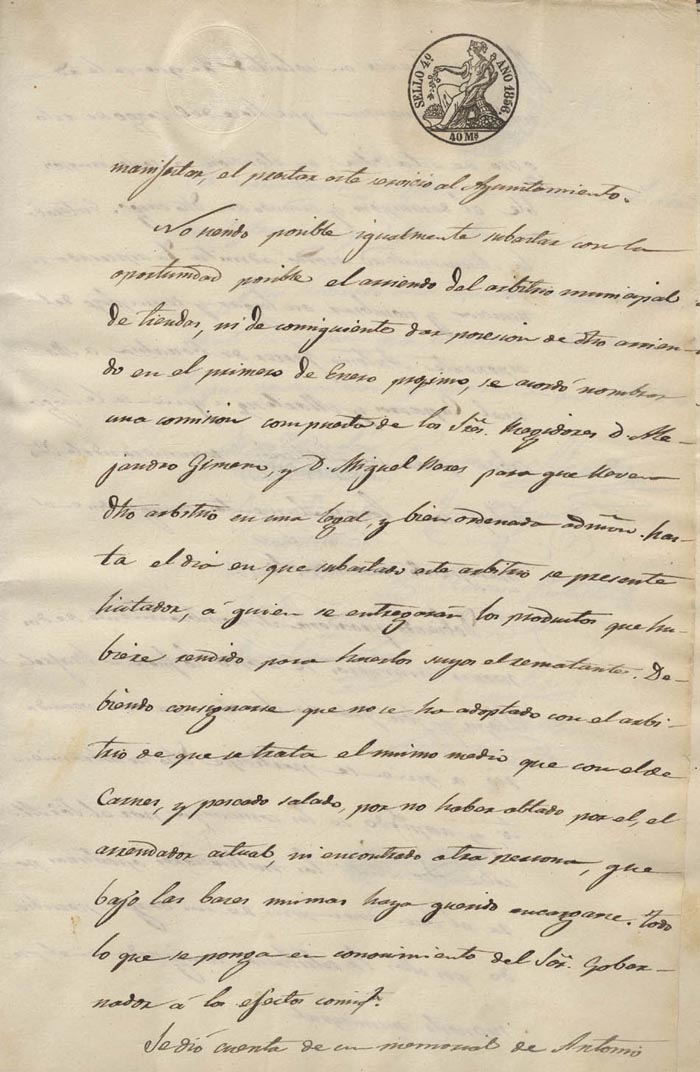 SELLO 4º AÑO 1856.
40 Ms
manifestar, el prestar este servicio al Ayuntamiento.
No siendo posible igualmente subastar con la
oportunidad posible el arriendo del arbitrio municipal
de tiendas, ni de consiguiente dar posesion de dho arrien-
do en el primero de Enero proximo, se acordó nombrar
una comision compuesta de los Sres. Regidores D. Ale-
jandro Gimeno, y D. Miguel Nares para que lleven
dho arbitrio en una legal, y bien ordenada admon. has-
ta el dia en que subastado este arbitrio se presente
licitador, á quien se entregarán los productos que hu-
biere rendido para hacerlos suyos el rematante. De-
biendo consignarse que no se ha adoptado con el arbi-
trio de que se trata el mismo medio que con el de
Carnes, y pescado salado, por no haber obtado por el, el
arrendador actual, ni encontrado otra persona, que
bajo las bases mismas haya querido encargarse. Todo
lo que se ponga en conocimiento del Sor. Gober-
nador á los efectos consigtes.
Se dió cuenta de un memorial de Antonio